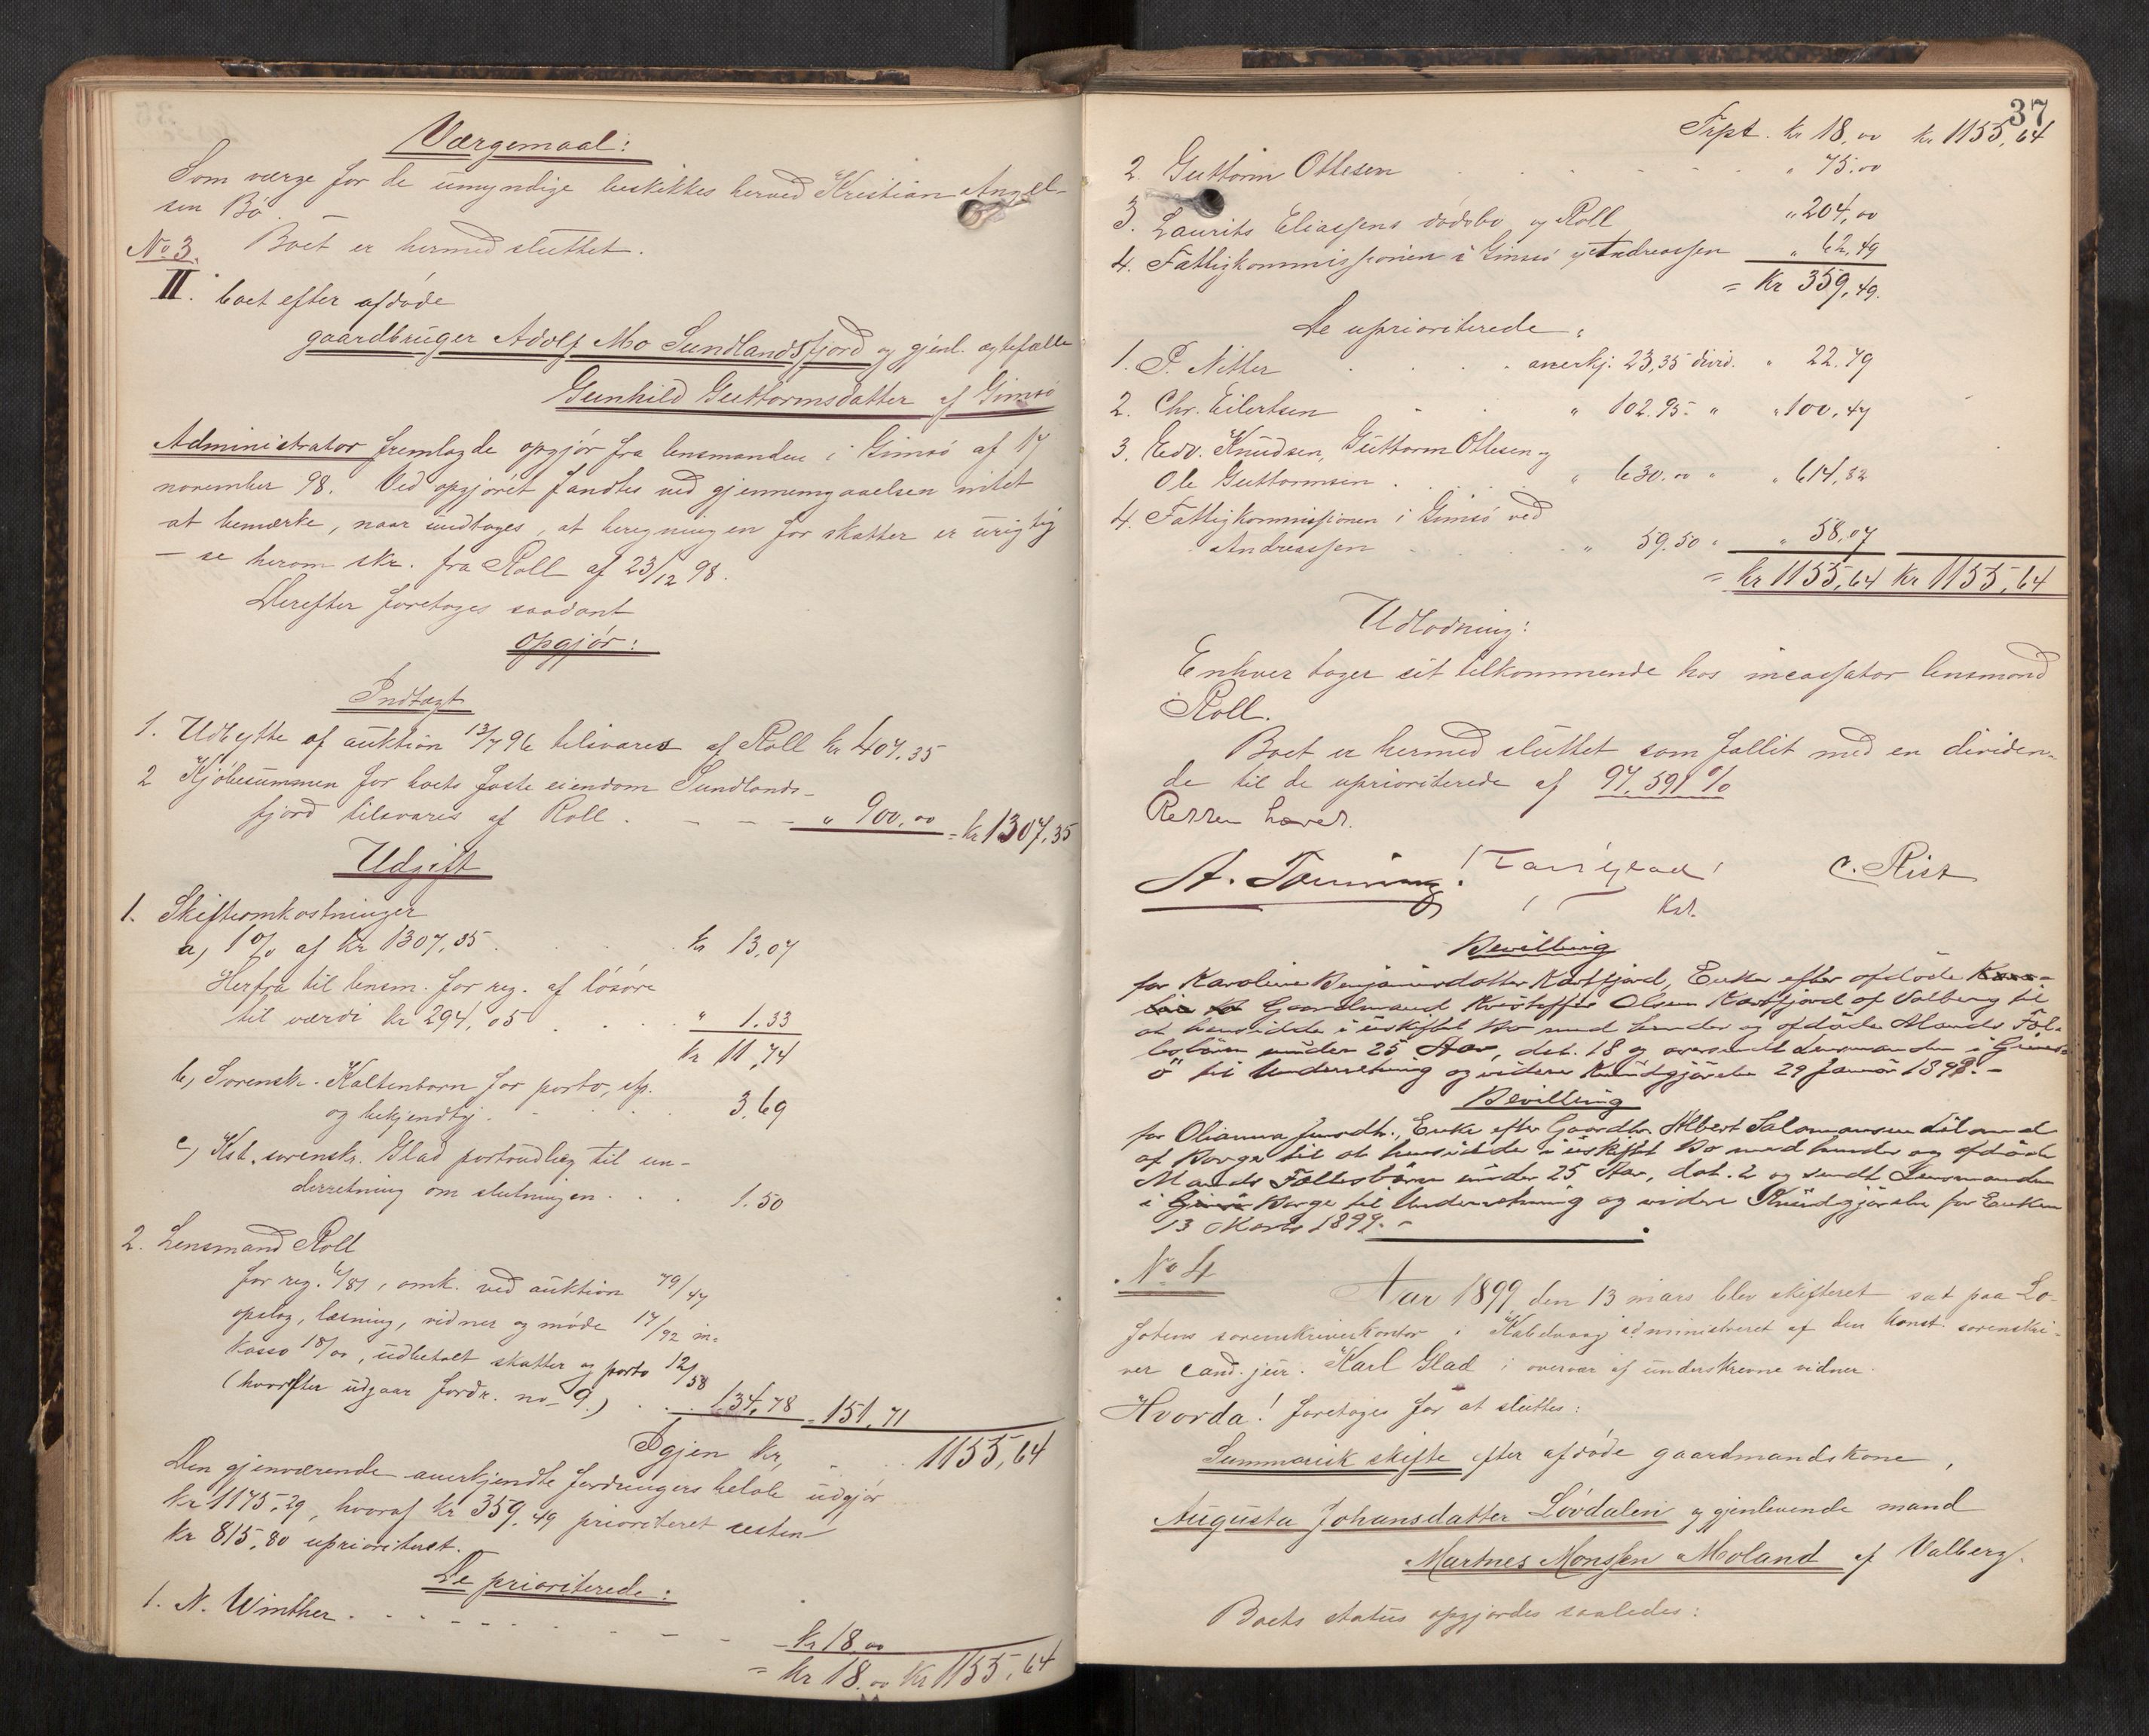 Værgemaal:
Som værge for de umyndige beskikkes herved Kristian Angel-
sen Bø.
No 3. Boet er hermed sluttet.
II. boet efter afdøde
gaardbruger Adolf Mo Sundlandsfjord og gjenl. ægtefælle
Gunhild Guttormsdatter af Gimsø
Administrator fremlagde opgjør fra lensmanden i Gimsø af 17
november 98. Ved opgjøret fandtes ved gjennemgaaelsen intet
at bemærke, naar undtages, at beregningen for skatter er urigtig
– se herom skr. fra Roll af 23/12 98.
Derefter foretoges saadant
opgjør:
Indtægt
1. Udbytte af auktion 13/7 96 tilsvares af Roll kr 407,35
2 Kjøbesummen for boets faste eiendom Sundlands-
fjord tilsvares af Roll . – – – " 900,00 = kr 1307,35
Udgift
1. Skifteomkostninger
a, 1 % af kr 1307,35 . . . . kr 13,07
Herfra til lensm. for reg. af løsøre
til værdi kr 294,05 . . . . " 1.33
kr 11,74
b, Sorenskr. Kaltenborn for porto,
og bekjendtg. . . . . 3,69
c, Kst. sorenskr. Glad portoudlæg til un-
derretning om slutningen . . . 1.50
2. Lensmand Roll
for reg. 6/81, omk. ved auktion 79/47
opslag, læsning, vidner og møde 17/92 in-
kasso 18/00, udbetalt skatter og porto 12/58
(hvorefter udgaar fordr. no 9.) . . 134,78 = 151,71
Igjen kr, . . . 1155,64
Den gjenværende anerkjendte fordringers beløb udgjør
kr 1175,29, hvoraf kr 359,49 prioriteret resten
kr 815,80 uprioriteret.
De prioriterede:
1. N. Winther . . . . – – – – kr 18,00
= kr 18,00 kr 1155,64
37
Trpt. kr 18,00 kr 1155,64
2. Guttorm Ottesen . . . . . . " 75.00
3. Laurits Eliassens dødsbo og Roll " 204,00
4. Fattigkommissionen i Gimsø v Andreassen " 62,49
= kr 359,49.
De uprioriterede:
1. P. Nitter . . . . anerkj. 23,35 divid. " 22.79
2. Chr. Eilertsen . . " 102.95 " " 100,47
3. Edv. Knudsen, Guttorm Ottesen og
Ole Guttormsen . . . . " 630.00 " " 614,82
4. Fattigkommissionen i Gimsø ved
Andreassen . . . . . " 59.50 " " 58,07
= kr 1155,64 kr 1155,64
Udlodning:
Enhver tager sit tilkommende hos incassator lensmand
Roll.
Boet er hermed sluttet som fallit med en dividen-
de til de uprioriterede af 97,591 %
Retten hævet.
Karl Glad C. Rist
Kst.
Bevilling
for Karoline Benjaminsdatter Kartfjord, Enke efter afdøde Karo-
line Gaardmand Kristoffer Olsen Kartfjord af Valberg til
at hensidde i uskiftet Bo med hendes og afdøde Mands Fæl-
lesbørn under 25 Aar, dat. 18 og oversendt Lensmanden i Gims-
ø til Underretning og videre Kundgjørelse 29 Januar 1899. –
Bevilling
for Olianna Jensdtr., Enke efter Gaardbr. Albert Salomonsen
af Borge til at hensidde i uskiftet Bo med hendes og afdøde
Mands Fællesbørn under 25 Aar, dat. 2 og sendt Lensmanden
i Gimsø Borge til Underretning og videre Kundgjørelse for Enken
13 Marts 1899. –
No 4
Aar 1899 den 13 mars blev skifteret sat paa Lo-
fotens sorenskriverkontor i Kabelvaag administreret af den konst. sorenskri-
ver cand. jur. Karl Glad i overvær af underskrevne vidner.
Hvorda! foretoges for at sluttes:
Summarisk skifte efter afdøde gaardmandskone,
Augusta Johansdatter Løvdalen og gjenlevende mand
Martnes Monssen Moland af Valberg.
Boets status opgjordes saaledes: